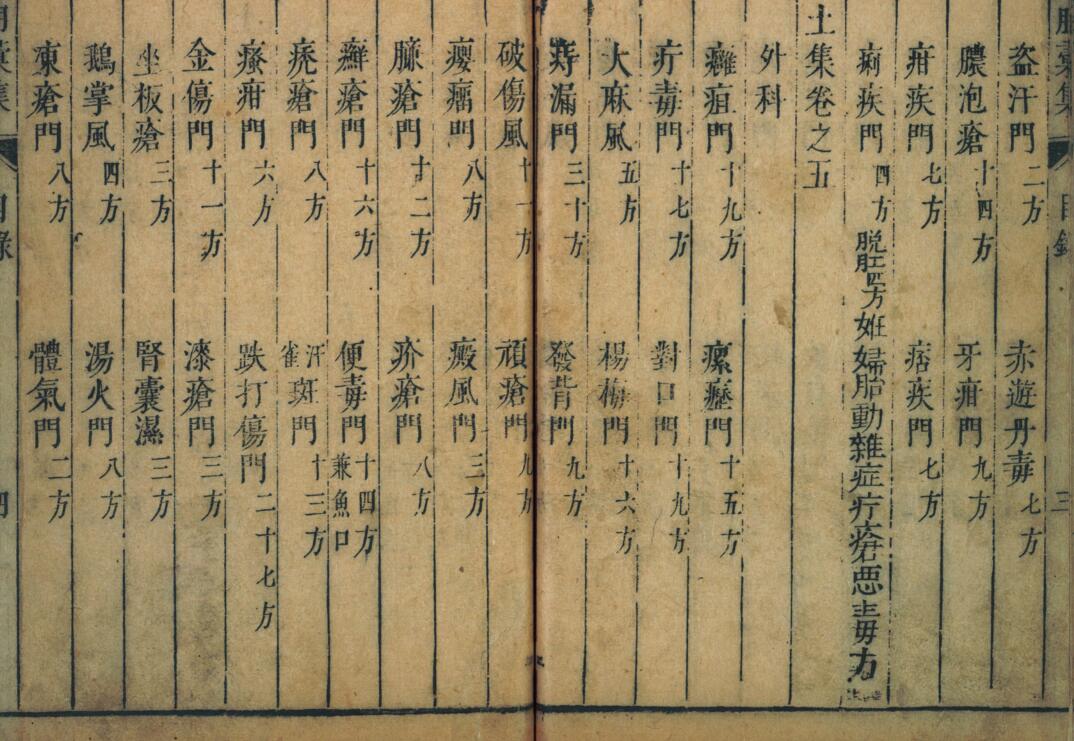 盗汗門 二方 赤遊丹毒 七方
膿泡瘡 十四方 牙疳門 九方
疳疾門 七方 痞疾門 七方
痢疾門 四方 脫肛四方 妊婦胎動雜症疔瘡惡毒方
土集卷之五
外科
癰疽門 十九方 瘰癧門 十五方
疔毒門 十七方 對口門 十九方
大麻風 五方 楊梅門 十六方
痔漏門 三十方 發背門 九方
破傷風 十一方 頑瘡門 九方
癭瘤門 八方 癜風門 三方
臁瘡門 十二方 疥瘡門 八方
癬瘡門 十六方 便毒門 十四方 兼魚口
禿瘡門 八方 汗斑雀斑門 十三方
瘙疳門 六方 跌打傷門 二十七方
金傷門 十一方 漆瘡門 三方
坐板瘡 三方 腎囊濕 三方
鵝掌風 四方 湯火門 八方
凍瘡門 八方 體氣門 二方